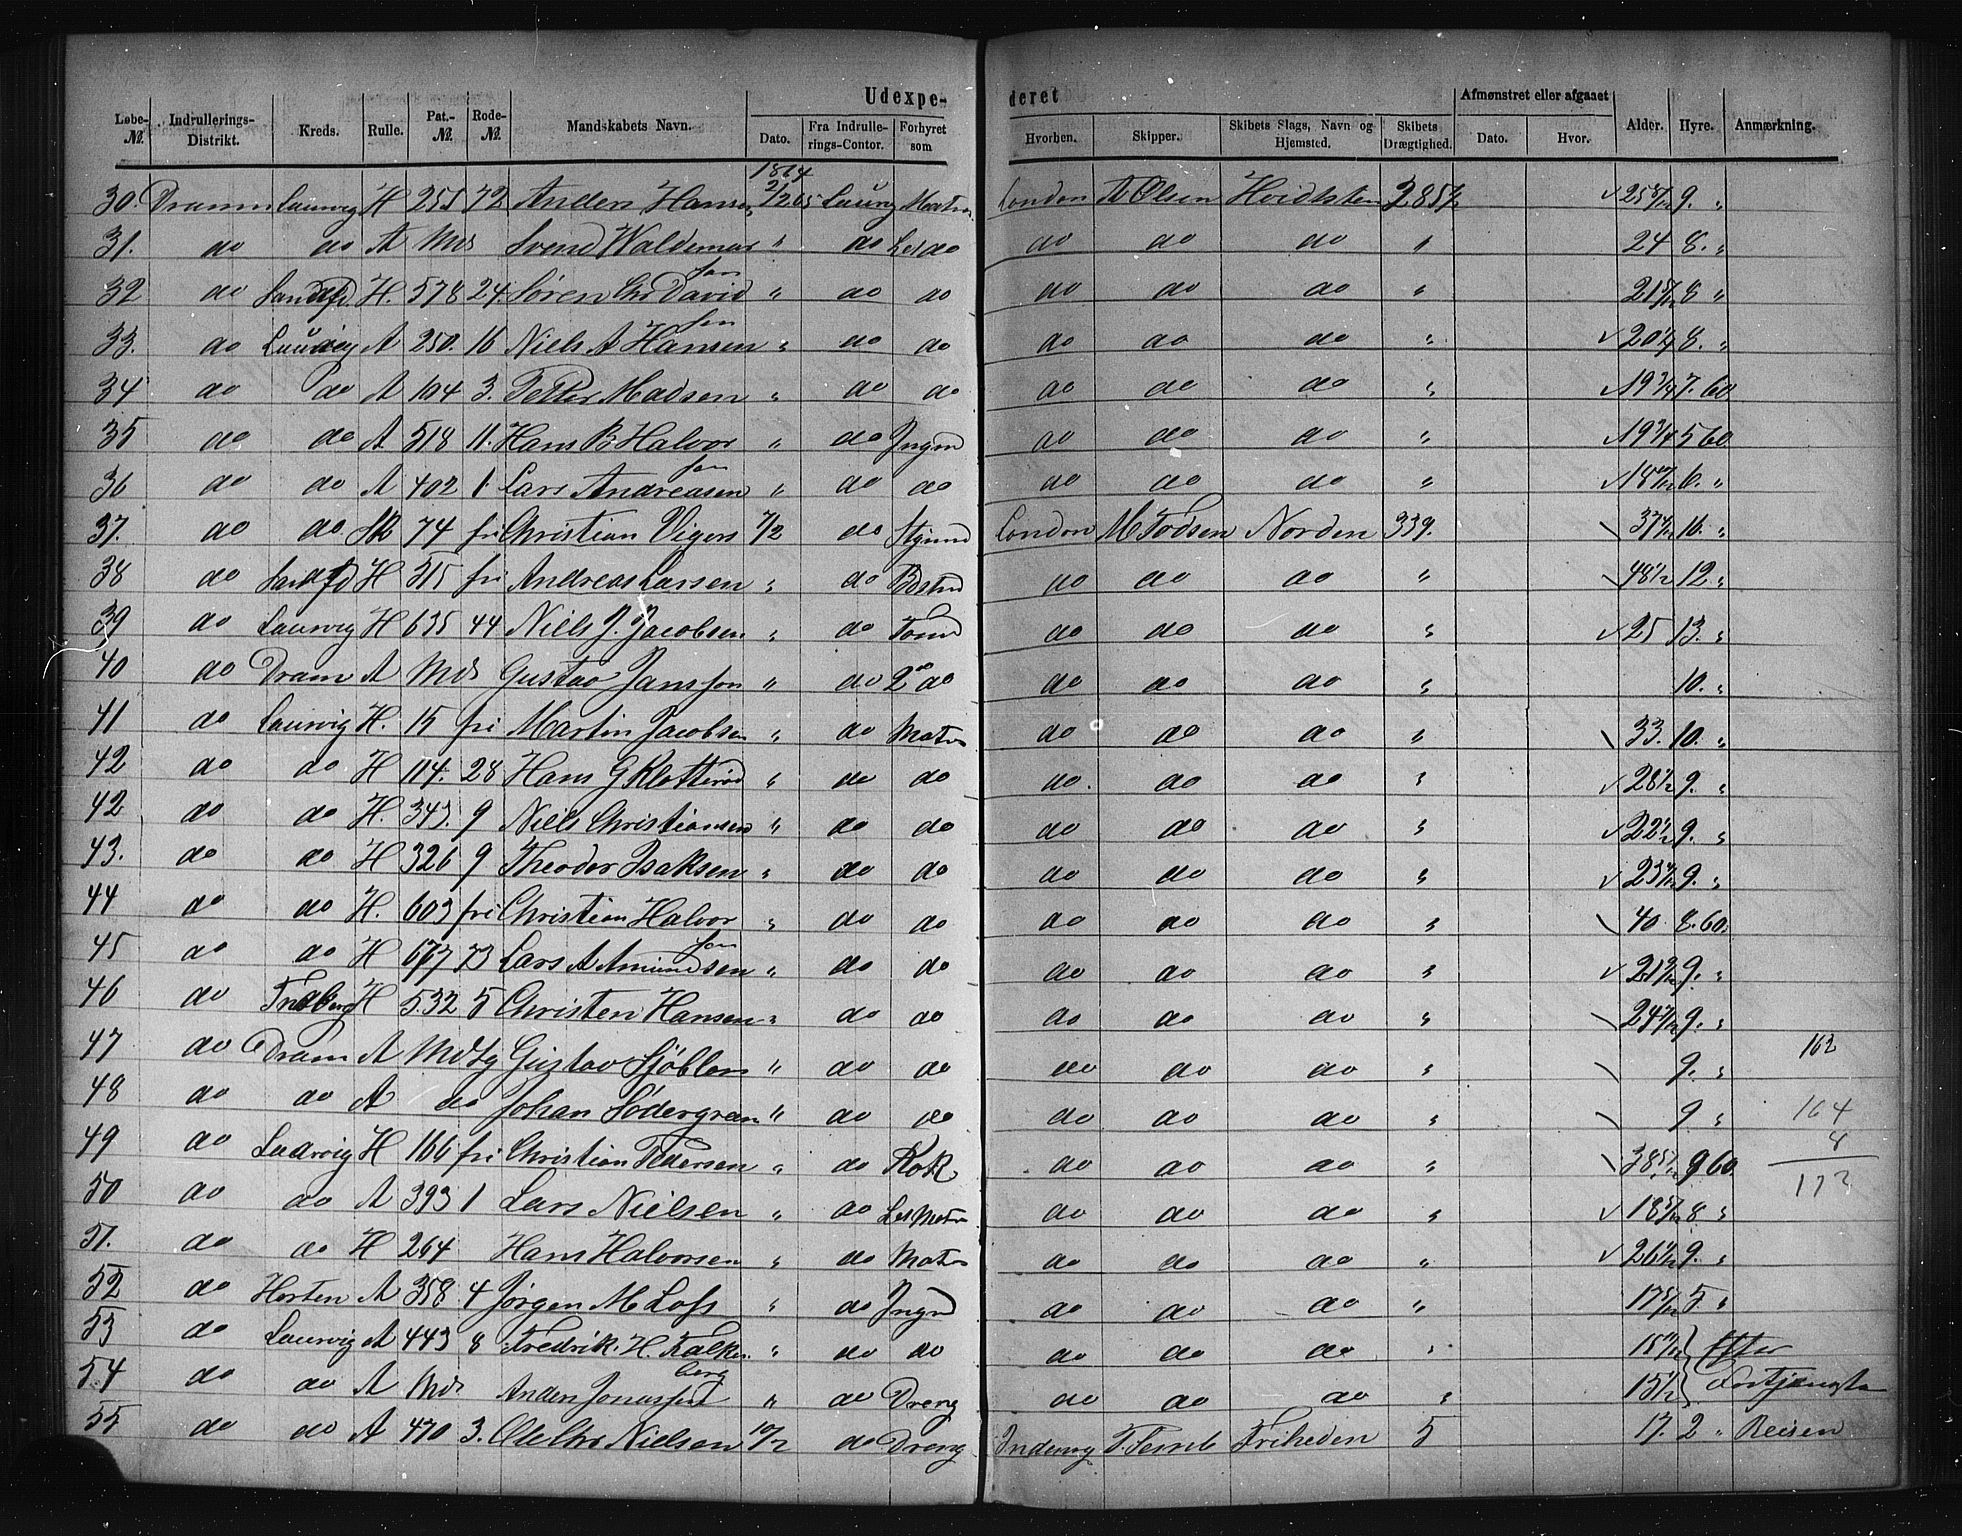 Udexpe- deret
Løbe-№ Indrullerings-Distrikt. Kreds. Rulle. Pat.-№ Rode-№ Mandskabets Navn. Dato. Fra Indrullerings-Contor. Forhyret som Hvorhen. Skipper. Skibets Slags, Navn og Hjemsted. Skibets Drægtighed. Afmønstret eller afgaaet Dato. Hvor. Alder. Hyre. Anmærkning.
30. Dramn Laurvig H 255 72 Anders Hansen 2/2 65 Laurv Matr London A Olsen Hvidtsten 9. "
31. do do A Mds Svend Waldemar " do Let do do do do " 24 8. "
32 do Sandefd H. 578 24 Søren Chr David sen " do do do do do " 8 "
33. do Laurvig A 250. 16 Niels A Hansen " do do do do do " 8. "
34 do do A 104 3. Petter Madsen " do do do do do " 19 3/4 7. 60
35 do do A 518 11. Hans B Halvor sen " do Jngm do do do " 19 3/4 5 60
36 do do A 402 1 Lars Andreasen " do do do do do " 6. "
37. do do 74 fri Christian Vigers 7/2 do Stymd London M Todsen Norden 339. 16. "
38 do Sandefd H 315 fri Andreas Larsen " do Bestmd do do do " 48 1/2 12 "
39 do Laurvig H 635 44 Niels J. Jacobsen " do Tømd do do do " 25 13. "
40 do Dram A Mds Gustav Jansson " do 2 do do do do " 10. "
41 do Laurvig H. 15 fri Martin Jacobsen " do Matr do do do " 33. 10. "
42 do do H 114. 28 Hans G Klotterød " do do do do do " 28 1/2 9. "
42 do do H. 343. 9 Niels Christiansen " do do do do do " 22 1/2 9. "
43. do do H 326 9 Theodor Isaksen " do do do do do " 9. "
44 do do H. 603 fri Christian Halvor sen " do do do do do " 40 8. 60.
45 do do H 23 Lars A Amundsen " do do do do do " 9. "
46 do H 532 5 Christen Hansen " do do do do do " 9. "
47 do Dram A Mds Gustav Sjöblom " do do do do do " 9. " 162
48 do do A do Johan Södergran " do do do do do " 9 " 164
49 do Laurvig H 166 fri Christian Pedersen " do Kok do do do " 9 60 8
172
50 do do A 393 1 Lars Nielsen " do Let Matr do do do " 8 "
51. do do H 264 Hans Halvorsen " do Matr do do do " 26 1/2 9. "
52 do Horten A 358 4 Jørgen M Lofs " do Jngm do do do " 5. "
53 do Laurvig A 443 8 Fredrik. H. Falken berg " do do do do do " Efter
54 do do A Mds Anders Jonassen " do Dreng do do do " 15 1/2 Fortjeneste
55 do do A 470 3. Ole Chr Nielsen 10/2 do Dreng Indenrg Friheden 5 17. 2 " Reisen